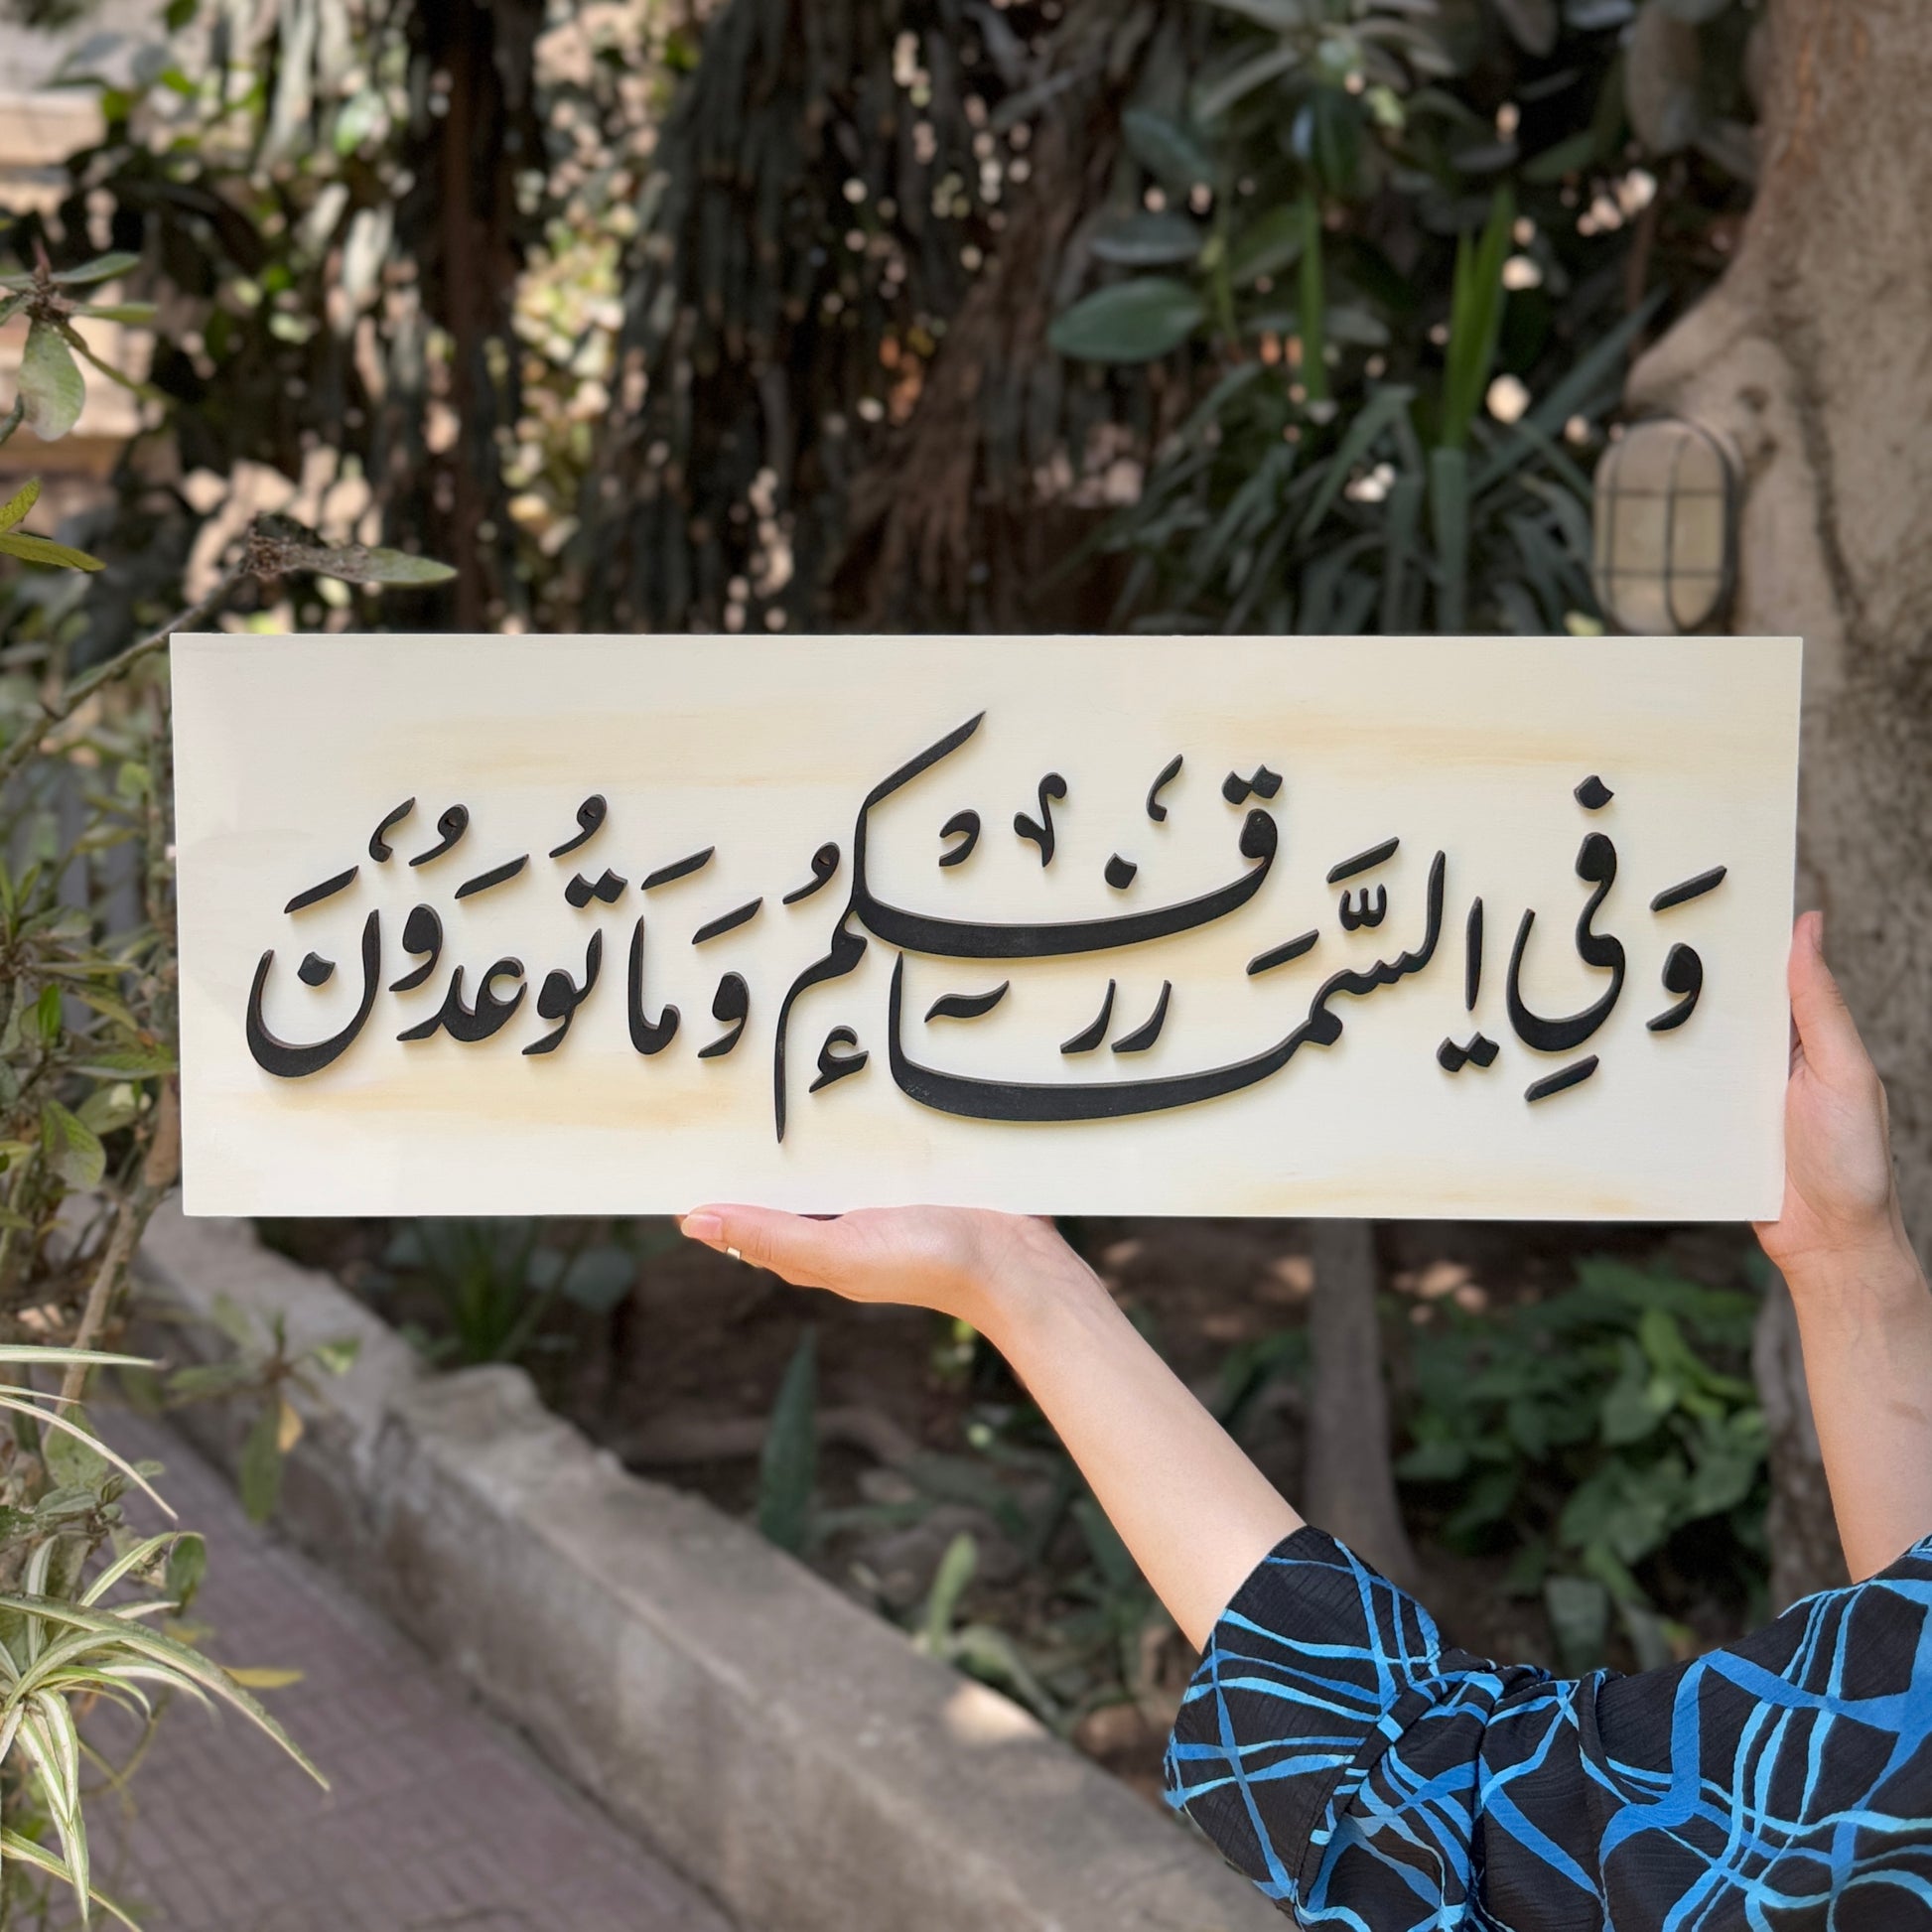 وَفِي السَّمَآءِ رزقكُم وَمَا تُوعَدُونَ